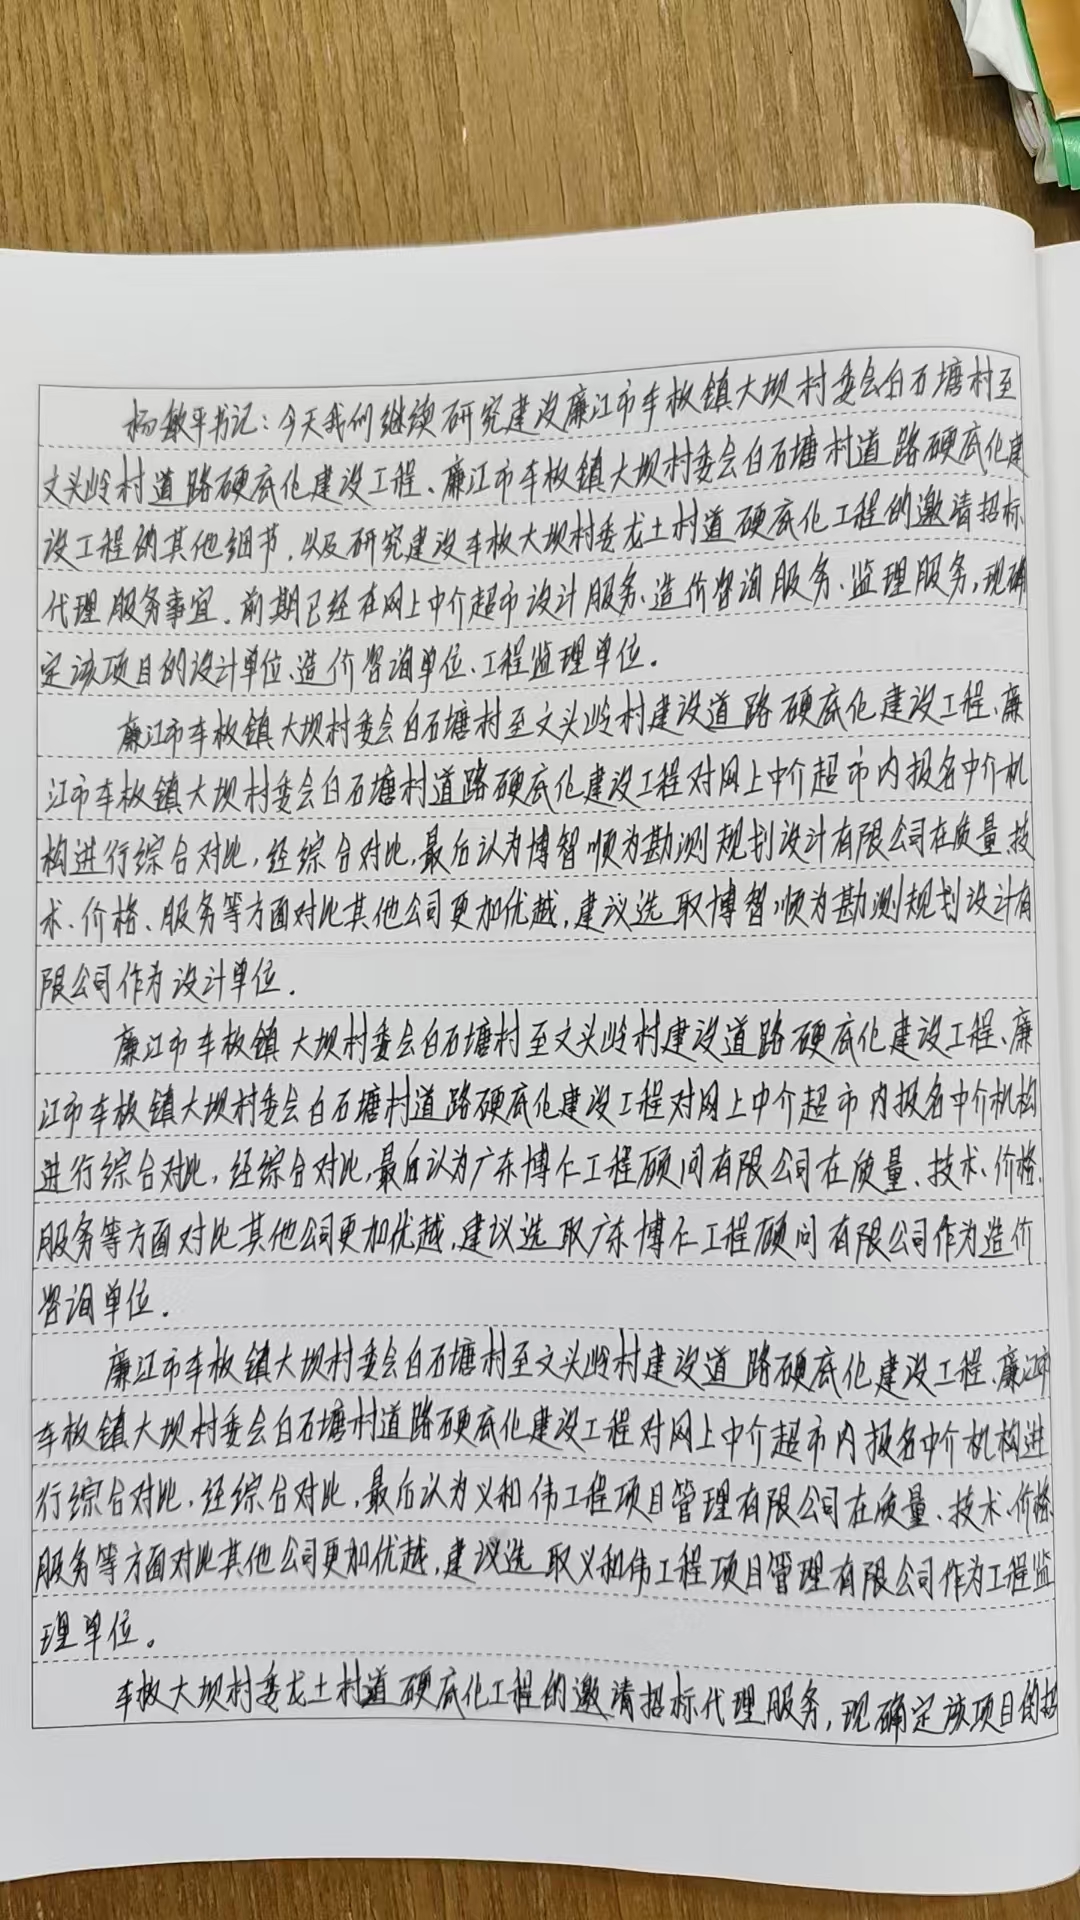 杨敏平书记：今天我们继续研究建设廉江市车板镇大坝村委会白石塘村至
文头岭村道路硬底化建设工程、廉江市车板镇大坝村委会白石塘村道路硬底化建
设工程的其他细节，以及研究建设车板大坝村委龙土村道硬底化工程的邀请招标
代理服务事宜。前期已经在网上中介超市设计服务、造价咨询服务、监理服务，现确
定该项目的设计单位、造价咨询单位、工程监理单位。
廉江市车板镇大坝村委会白石塘村至文头岭村建设道路硬底化建设工程、廉
江市车板镇大坝村委会白石塘村道路硬底化建设工程对网上中介超市内报名中介机
构进行综合对比，经综合对比，最后认为博智顺为勘测规划设计有限公司在质量、技
术、价格、服务等方面对比其他公司更加优越，建议选取博智顺为勘测规划设计有
限公司作为设计单位。
廉江市车板镇大坝村委会白石塘村至文头岭村建设道路硬底化建设工程、廉
江市车板镇大坝村委会白石塘村道路硬底化建设工程对网上中介超市内报名中介机构
进行综合对比，经综合对比，最后认为广东博仁工程顾问有限公司在质量、技术、价格、
服务等方面对比其他公司更加优越，建议选取广东博仁工程顾问有限公司作为造价
咨询单位。
廉江市车板镇大坝村委会白石塘村至文头岭村建设道路硬底化建设工程、廉江市
车板镇大坝村委会白石塘村道路硬底化建设工程对网上中介超市内报名中介机构进
行综合对比，经综合对比，最后认为义和伟工程项目管理有限公司在质量、技术、价格、
服务等方面对比其他公司更加优越，建议选取义和伟工程项目管理有限公司作为工程监
理单位。
车板大坝村委龙土村道硬底化工程的邀请招标代理服务，现确定该项目的招